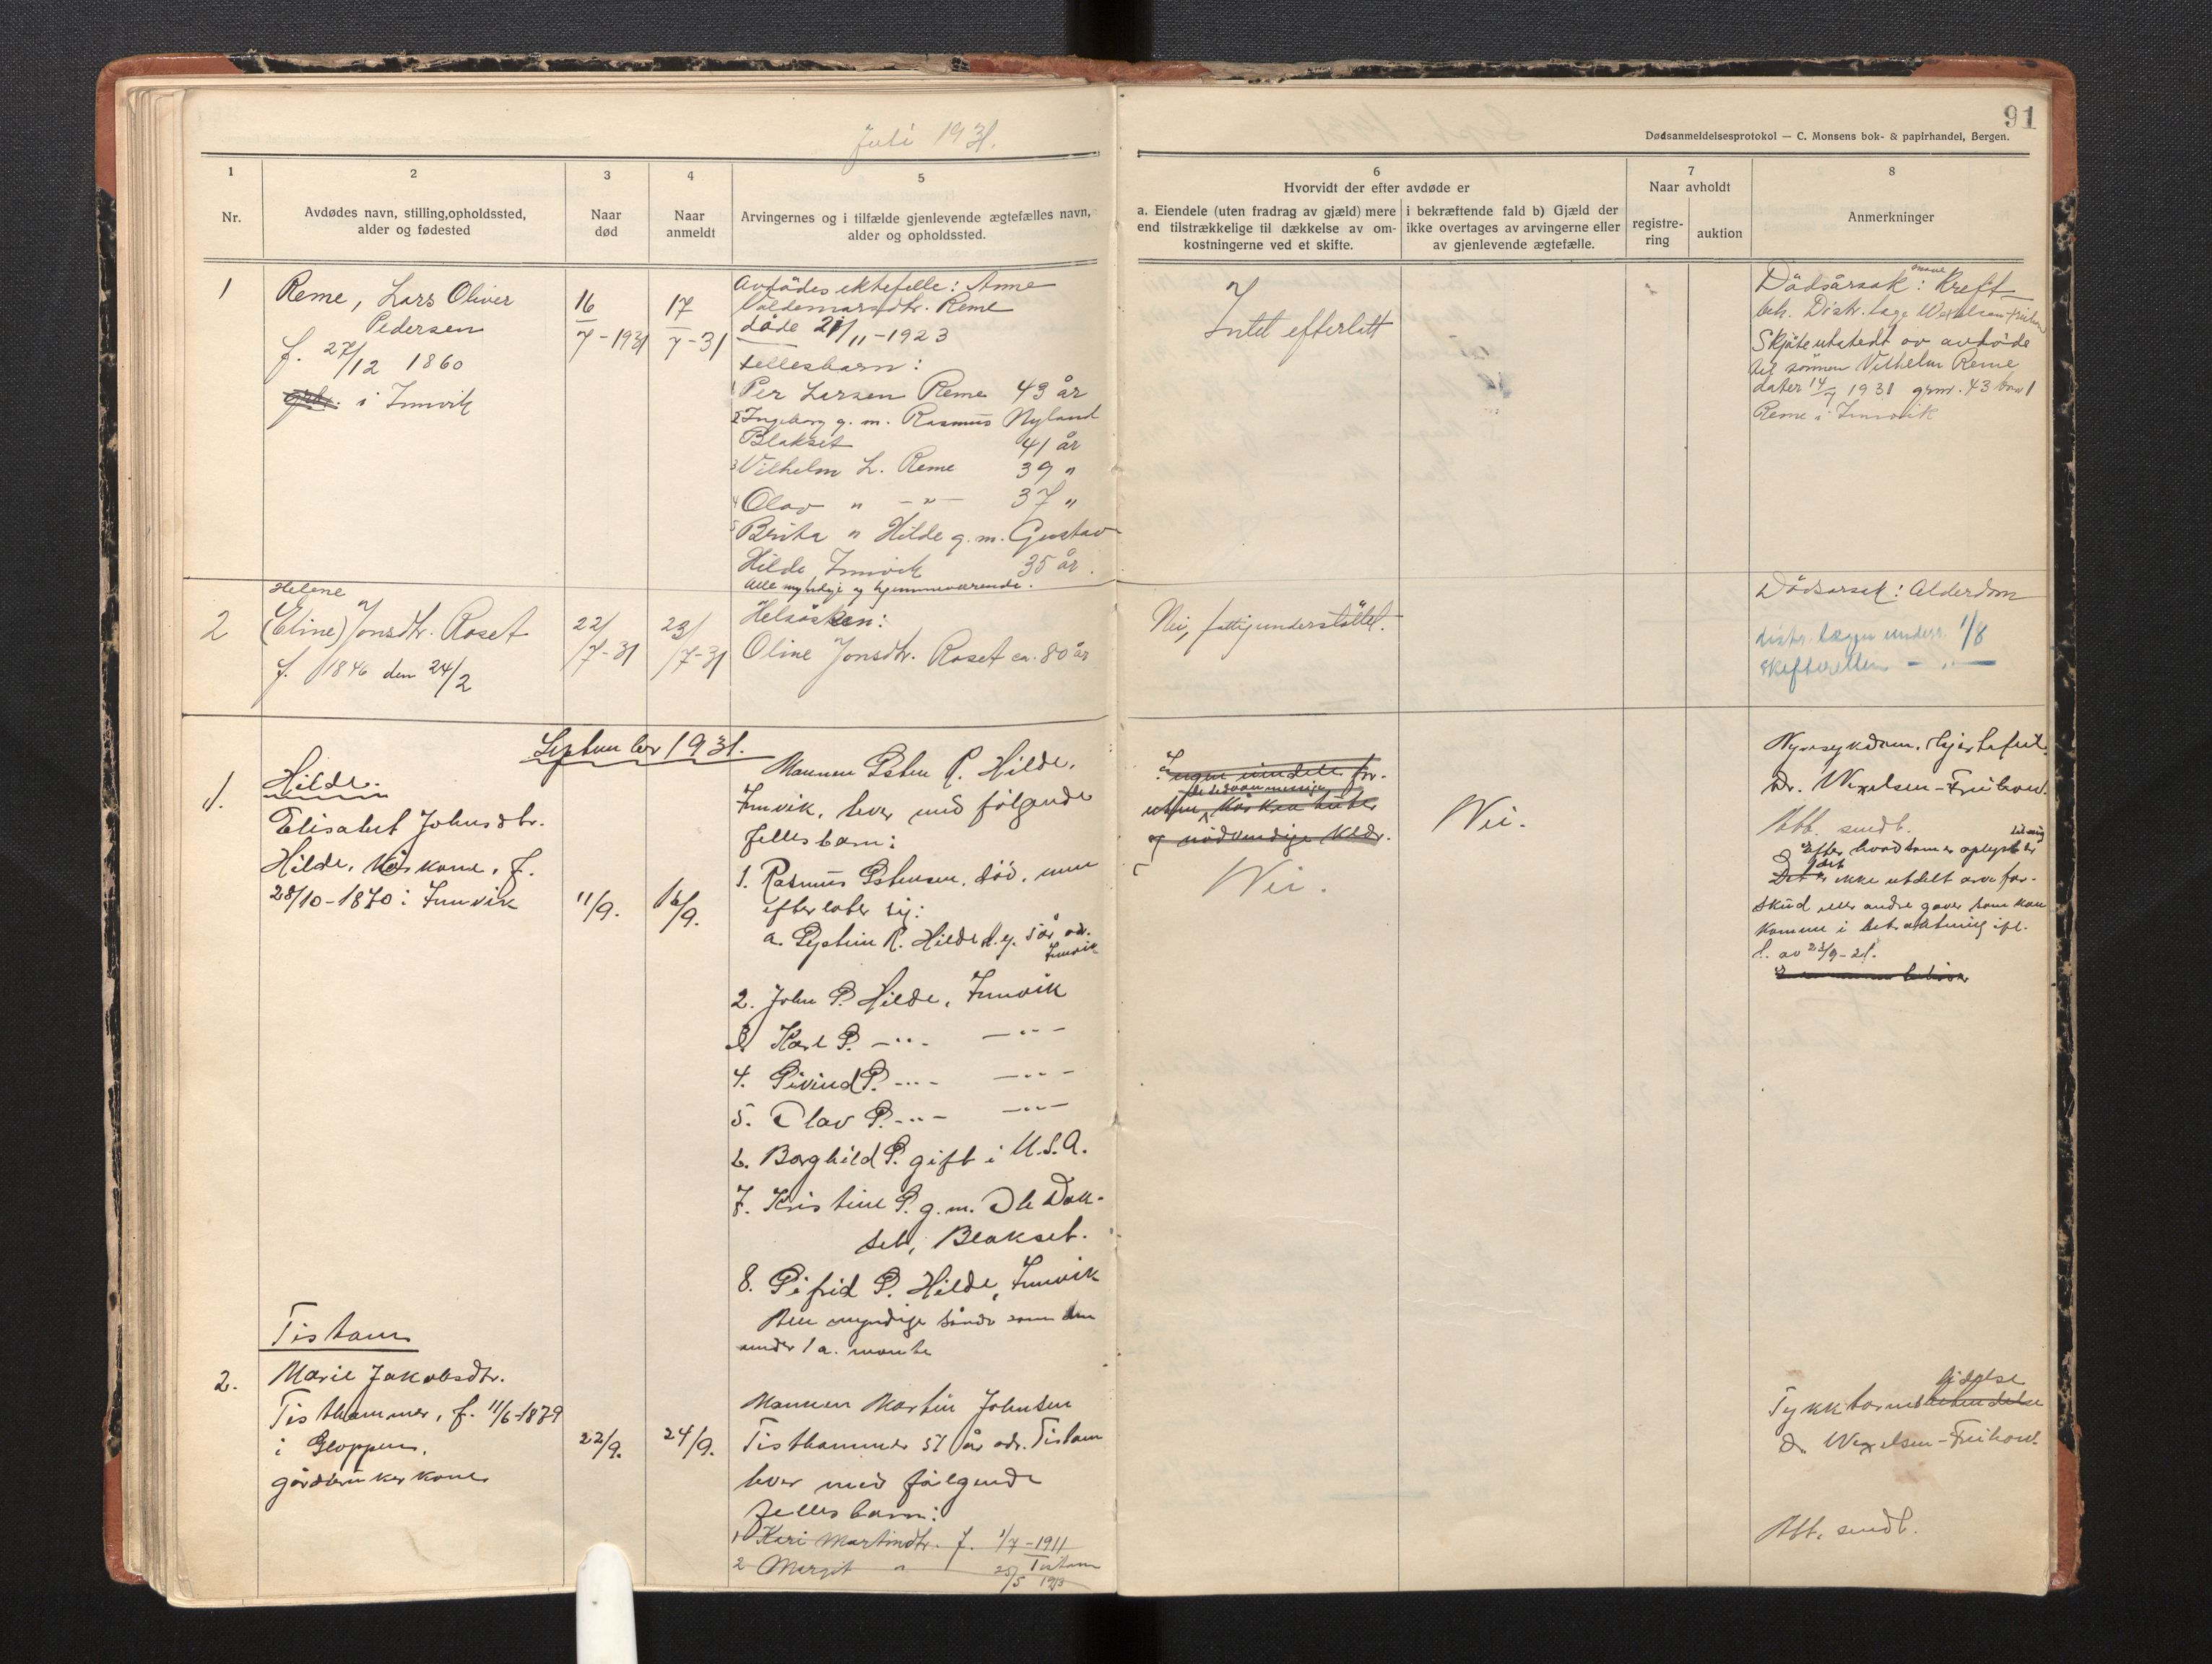 Juli 1931.
91
Dødsanmeldelsesprotokol — C. Monsens bok- & papirhandel, Bergen.
1
Nr.
2
Avdødes navn, stilling, opholdssted,
alder og fødested
3
Naar
død
4
Naar
anmeldt
5
Arvingernes og i tilfælde gjenlevende ægtefælles navn,
alder og opholdssted.
6
Hvorvidt der efter avdøde er
a. Eiendele (uten fradrag av gjæld) mere
end tilstrækkelige til dækkelse av om-
kostningerne ved et skifte.
i bekræftende fald b) Gjæld der
ikke overtages av arvingerne eller
av gjenlevende ægtefælle.
7
Naar avholdt
registre-
ring
auktion
8
Anmerkninger
1
Reme, Lars Oliver
Pedersen
f. 27/12 1860
i Innvik
16
7-1931
17
7-31
Avdødes ektefelle: Anne
Valdemarsdtr. Reme
døde 21/11-1923
Fellesbarn:
1 Per Larsen Reme 43 år
2 Ingeborg g. m. Rasmus Nyland
Blakset 41 år
3 Vilhelm L. Reme 39 "
4 Olav " -"- 37 "
5 Brita " Hilde g. m. Gustav
Hilde Innvik 35 år.
Alle myndige og hjemmeværende.
Intet efterlatt
Dødsårsak: mave Kreft
beh. Distr. læge Wexelsen-Freihow
Skjöte utstedt av avdøde
til sönnen Vilhelm Reme
dater 14/7 1931 grnr. 43 brnr 1
Reme i Innvik
2
Helene
(Eline) Jonsdtr. Roset
f. 1846 den 24/2
22/
/7-31
23/
/7-31
Helsösken:
Oline Jonsdtr. Roset ca. 80 år
Nei, fattigunderstöttet.
Dödsorsak: Alderdom
distr. lægen underr. 1/8
skifteretten - " -
September 1931.
1.
Hilde.
Elisabet Johnsdtr.
Hilde, kårkone, f.
28/10-1870 i Innvik
11/9.
16/9.
Mannen Peter R. Hilde,
Innvik, lever med følgende
fellesbarn:
1. Rasmus Petersen, död, men
efterlater sig:
a. Øystein R. Hilde d.y. 5 år, adr.
Innvik
2. John P. Hilde, Innvik
3 Karl P. -"- -"-
4. Eivind P. -"- -"-
5. Olav P. -"- -"-
6. Borghild P. gift i U.S.A.
7. Kristine P. g. m. Ole Dok-
set, Blakset.
8. Sigfrid P. Hilde, Innvik
Alle myndige så nær som den
under 1 a. nevnte
Ingen eiendele for-
uten
og nödvendige klær.
Nei.
Nei.
Nyresykdom, Hjertefeil.
Dr. Wexelsen-Freihow.
Att. sendt.
Efter hvad som er oplyst er
det ikke utdelt arvefor-
skud eller andre gaver som kan
komme i betraktning ifl.
l. av 23/9-21.
2.
Tistam
Marie Jakobsdtr.
Tisthammer, f. 11/6-1879
i Gloppen,
gårdbrukerkone
22/9.
24/9.
Mannen Martin Johnsen
Tisthammer 57 år adr. Tistam
lever med følgende
fellesbarn:
1 Kari Martinsdtr. f. 1/7-1911
Tistam
2 Margit " 25/5 1913
Tykktarms lidelse
Dr. Wexelsen-Freihow.
Att. sendt.